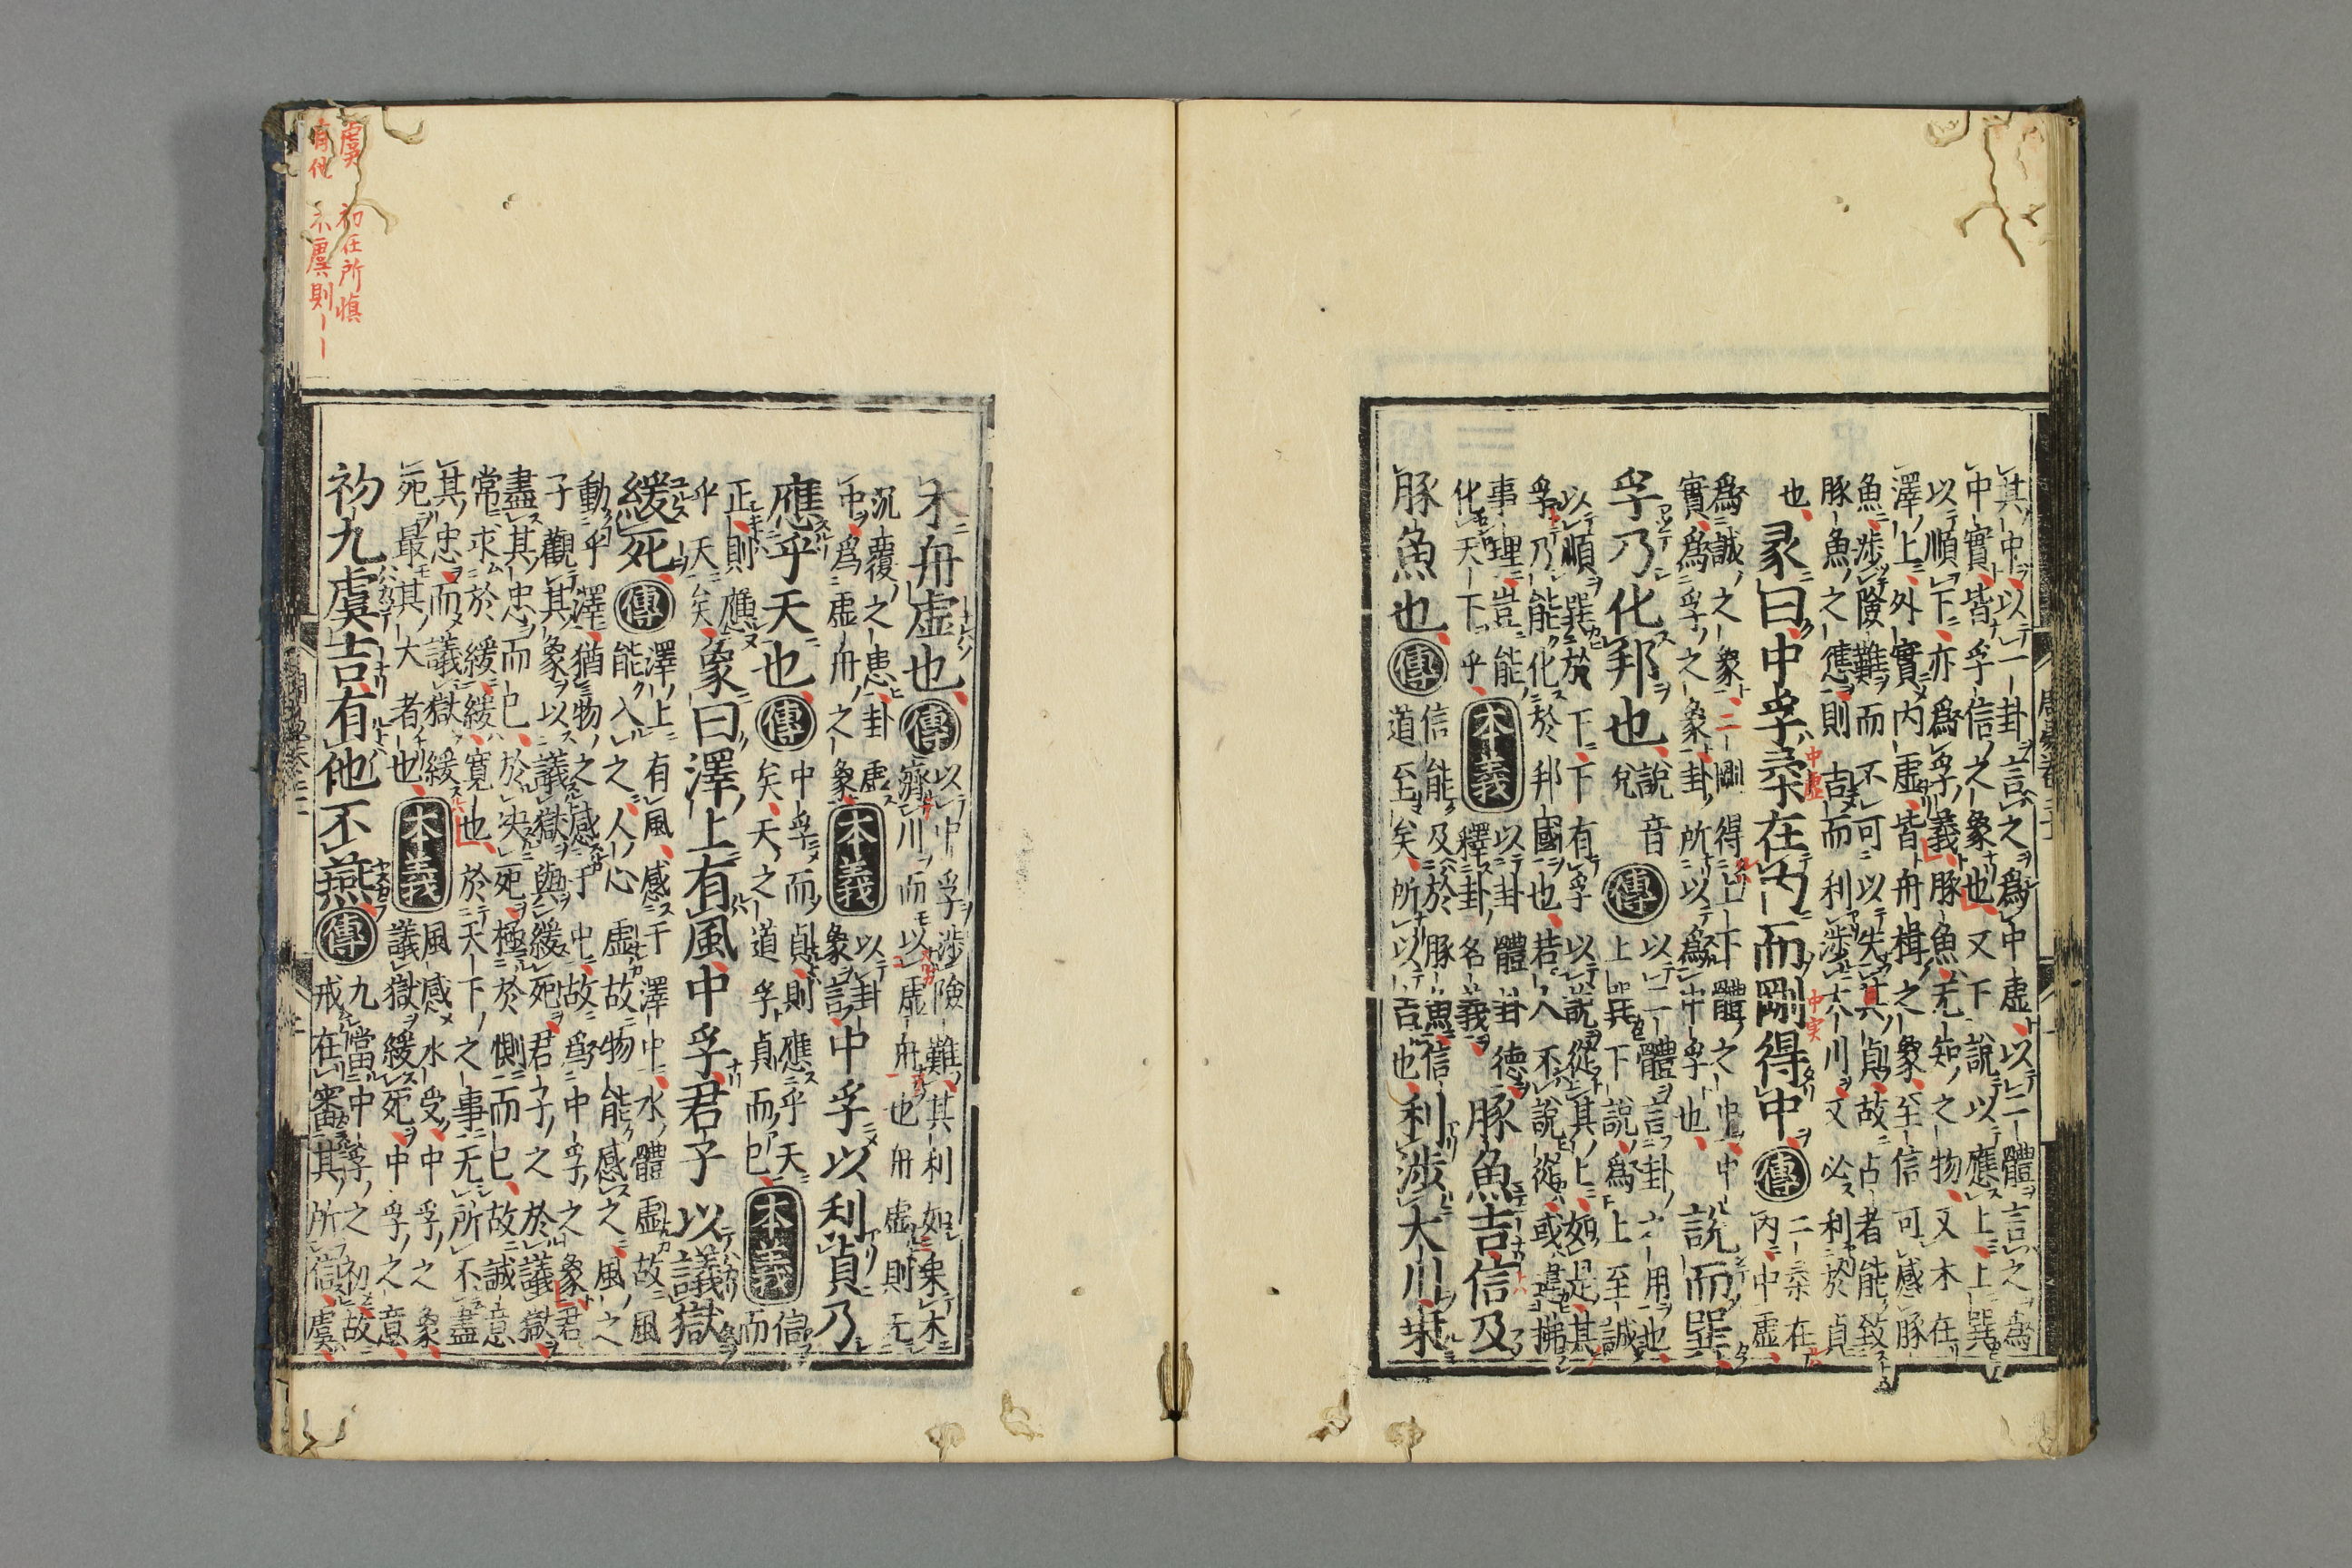 其中以一卦言之爲中虛以二體言之爲
中實皆孚信之象也又下說以應上上巽
以順下亦爲孚義豚魚无知之物又木在
澤上外實內虛皆舟楫之象至信可感豚
魚涉險難而不可以失其貞故占者能致
豚魚之應則吉而利涉大川又必利於貞
也彖曰中孚柔在內而剛得中傳二柔在內中虛
爲誠之象二剛得上下體之中中
實爲孚之象卦所以爲中孚也說而巽
孚乃化邦也說音悅傳以二體言卦之用也上巽下說爲上至誠
以順巽於下下有孚以說從其上如是其
孚乃能化於邦國也若人不說從或違拂
事理豈能化天下乎本義以卦體卦德釋卦名義豚魚吉信及
豚魚也傳信能及於豚魚信道至矣所以吉也利涉大川乘
中虛
中実
木舟虛也傳以中孚涉險難其利如乘木濟川而以虛舟也舟虛則无
沉覆之患卦虛中爲虛舟之象本義以卦象言中孚以利貞乃
應乎天也傳中孚而貞則應乎天矣天之道孚貞而已本義信而
正則應乎天矣象曰澤上有風中孚君子以議獄
緩死傳澤上有風感于澤中水體虛故風能入之人心虛故物能感之風之
動乎澤猶物之感于中故爲中孚之象君
子觀其象以議獄與緩死君子之於議獄
盡其忠而已於決死極於惻而已故誠意
常求於緩緩寬也於天下之事无所不盡
其忠而議獄緩死最其大者也本義風感水受中孚之象議獄緩死中孚之意
初九虞吉有他不燕傳九當中孚之初故戒在審其所信虞
虞 初在所慎
有他 不虞則